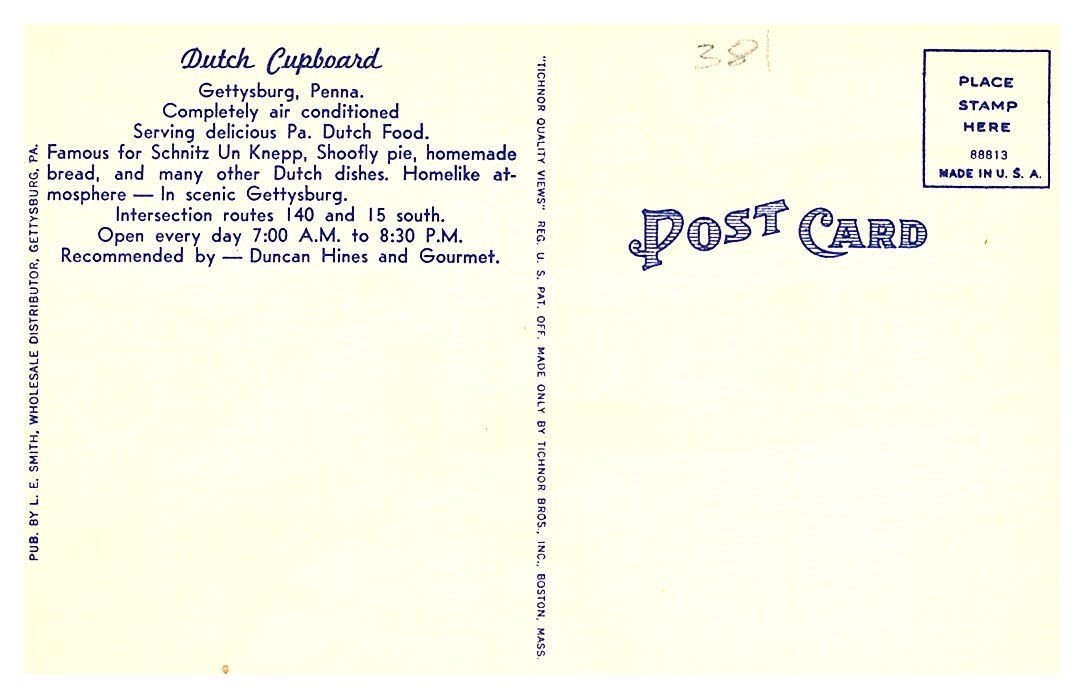 Dutch Cupboard
Gettysburg, Penna.
Completely air conditioned
Serving delicious Pa. Dutch Food.
Famous for Schnitz Un Knepp, Shoofly pie, homemade
bread, and many other Dutch dishes. Homelike at-
mosphere — In scenic Gettysburg.
Intersection routes 140 and 15 south.
Open every day 7:00 A.M. to 8:30 P.M.
Recommended by — Duncan Hines and Gourmet.
PUB. BY L. E. SMITH, WHOLESALE DISTRIBUTOR, GETTYSBURG, PA.
"TICHNOR QUALITY VIEWS" REG. U. S. PAT. OFF. MADE ONLY BY TICHNOR BROS., INC., BOSTON, MASS.
38
PLACE
STAMP
HERE
88813
MADE IN U. S. A.
POST CARD